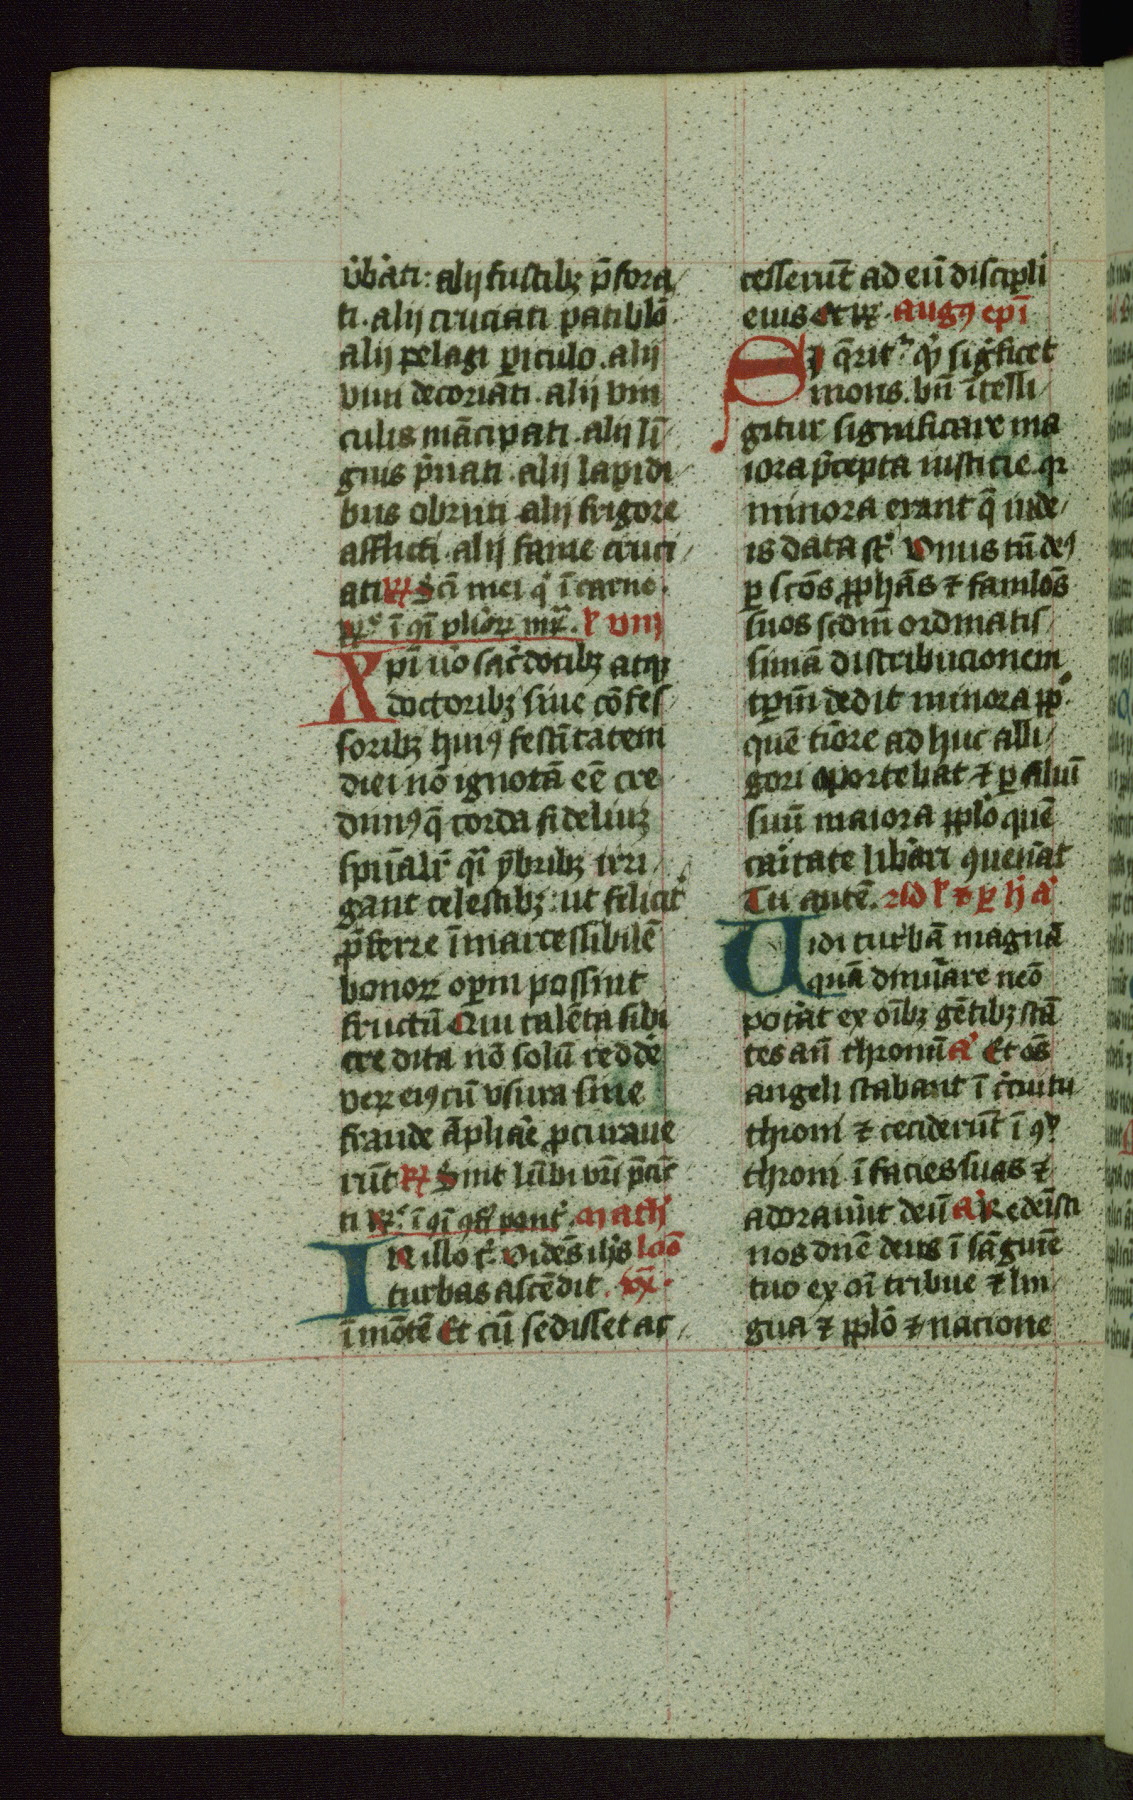 v̄b̄ati: alij fustibꝫ p̄fora
ti. alij cruciati patiblō
alij pelagi ꝑiculo. alij
viui decoriati. alij vin
culis māncipati. alij lī
guis p̄uati. alij lapidi
bus obruti alij frigore
afflicti. alij fame cruci
ati ꝶ Sci mei q ī carne.
plīorꝝ mr̄. l viij
Xpī ūo sacͬdotibꝫ atqꝫ
doctoribꝫ siue cōfes
soribꝫ huiꝰ festītatem
diei nō ignotā eē cre
dimꝰ q̄ corda fideliuꝫ
spūalī qͣi ymbribꝫ irri
gant celestibꝫ: ut feliciͭ
p̄ferre īmarcessibilē
bonorꝝ oꝑum possint
fructū Qui talēta sibi
credita nō solū reddē
verꝝ eiꝰ cū vsura sine
fraude āpliāe ꝓcuraue
rūt ꝶ Sint lūbi vrī p̄cīc
ti ponͭ. Math
In illo tͬ. Videns ihs lcō
turbas ascēdit. ix.
ī mōtē Et cū sedisset ac
cesserūt ad eū discipli
eius Et rꝝ. augꝰ epī
Si q̄ritͬ qͥ sigficet
mons. bn̄ ītelli
gitur significare ma
iora p̄cepta iusticie. qꝛ
minora erant q̄ iude
is data st̄ Vnus tn̄ deꝰ
ꝑ scōs ꝓphās ⁊ famlōs
suos scdm̄ ordinatis
simā distribucionem
tꝑm dedit minora pp̄
quē tiōre adhuc alli
gari oportebat ⁊ ꝑ filiū
suū maiora pplō quē
caritate lib̄ari ꝯuen̄at
Tu autē. Ad l ⁊ ꝑ h a
Uidi turbā magnā
quā dinūare neō
potat̄ ex oībꝫ gētibꝫ stā
tes an̄ thronū a Et oēs
angeli stabant ī cͬcuitu
throni ⁊ ceciderūt ī ꝯspͨ
throni ī facies suas ⁊
adorauūt deū a Redeīsti
nos dn̄e deus ī sāguīe
tuo ex oī tribue ⁊ lin
gua ⁊ pplō ⁊ nacione